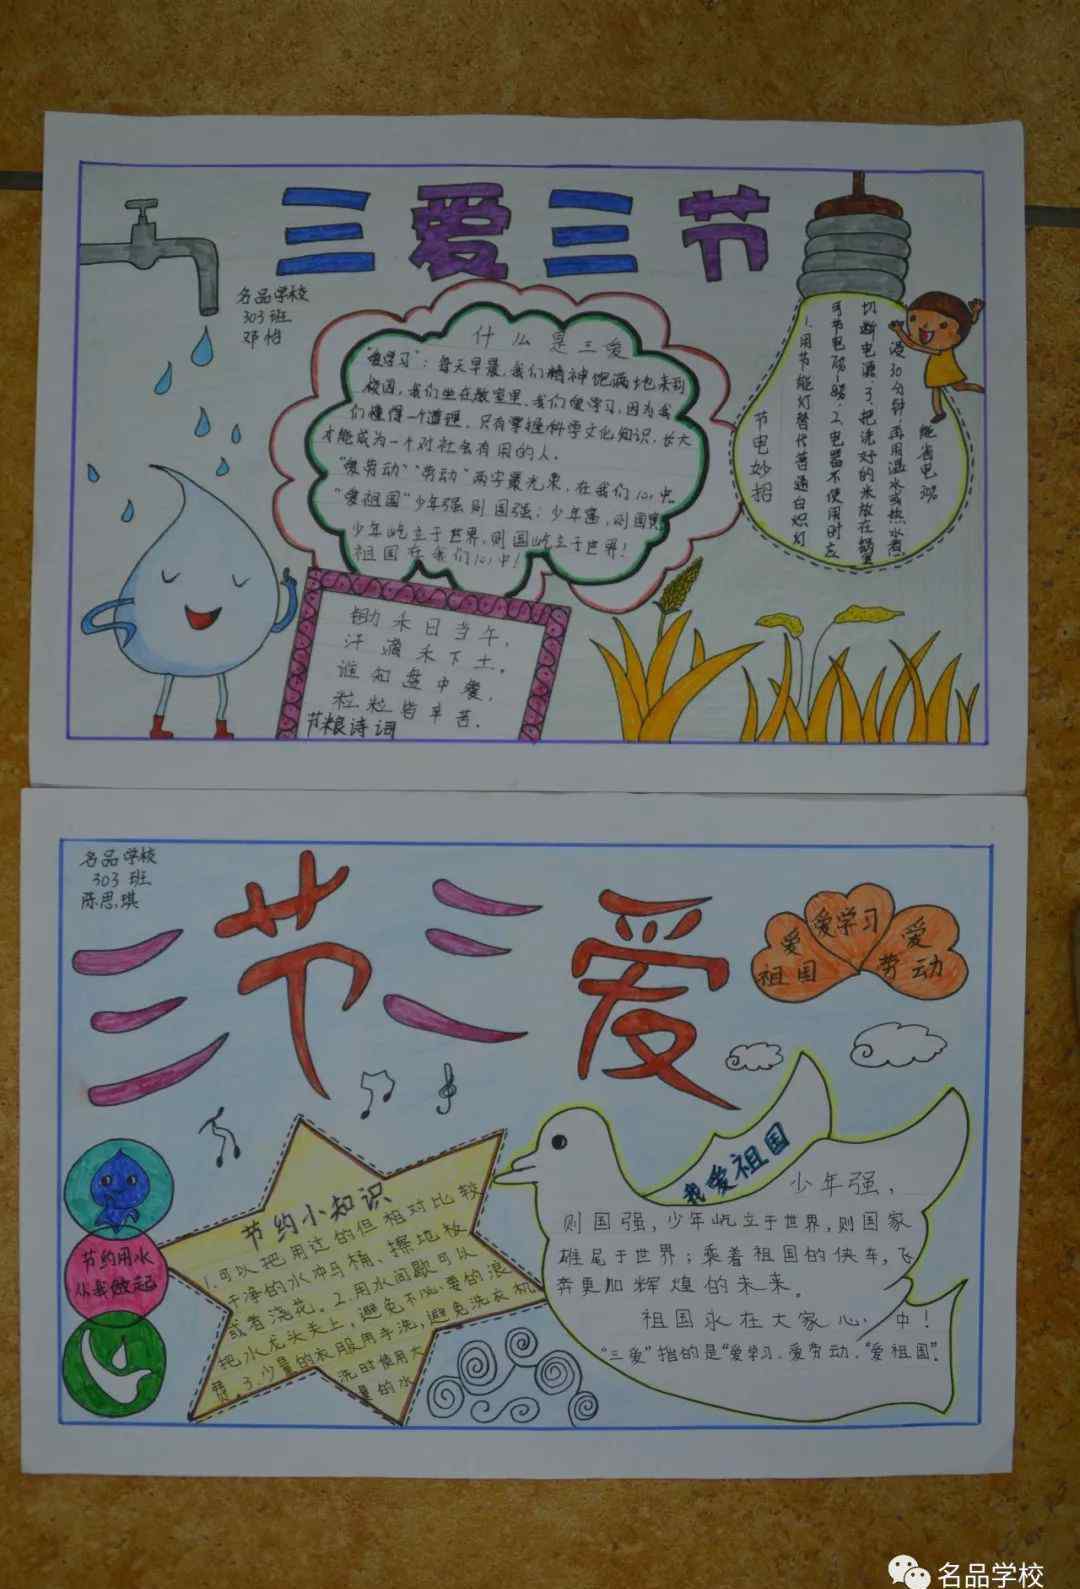 三爱三节
名品学校
303班
邓怡
什么是三爱
"爱学习"：每天早晨，我们精神饱满地来到
校园，我们坐在教室里，我们爱学习，因为我
们懂得一个道理，只有掌握科学文化知识，长大
才能成为一个对社会有用的人。
"爱劳动""劳动"两字最光荣，在我们心中
"爱祖国"少年强则国强；少年富，则国富
少年屹立于世界，则国屹立于世界！
祖国在我们心中！
节电妙招
1.用节能灯替代普通白炽灯
可节电 2.电器不使用时应
切断电源 3.把洗好的米放在锅里
浸30分钟，再用温水或热水煮，
能省电
锄禾日当午，
汗滴禾下土。
谁知盘中餐，
粒粒皆辛苦．
节粮诗词
名品学校
303班
陈思琪
三节三爱
爱祖国
爱学习
爱劳动
节约用水
从我做起
节约小知识
1.可以把用过的但相对比较
干净的水冲马桶、擦地板
或者浇花。2.用水间歇可以
把水龙头关上，避免不必要的浪
费．3.少量的衣服用手洗，避免洗衣机
洗时使用大
量的水
我爱祖国
少年强，
则国强，少年屹立于世界，则国家
雄尾于世界；乘着祖国的快车，飞
奔更加辉煌的未来。
祖国永在大家心中！
"三爱"指的是"爱学习、爱劳动、"爱祖国"．
名品学校